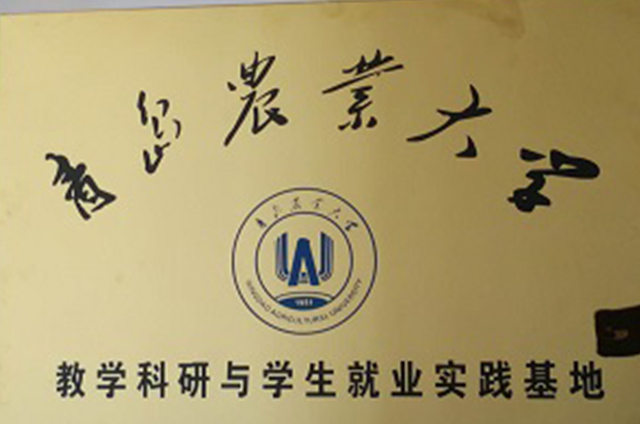 青岛农业大学
青岛农业大学
QINGDAO AGRICULTURAL UNIVERSITY
1951
教学科研与学生就业实践基地